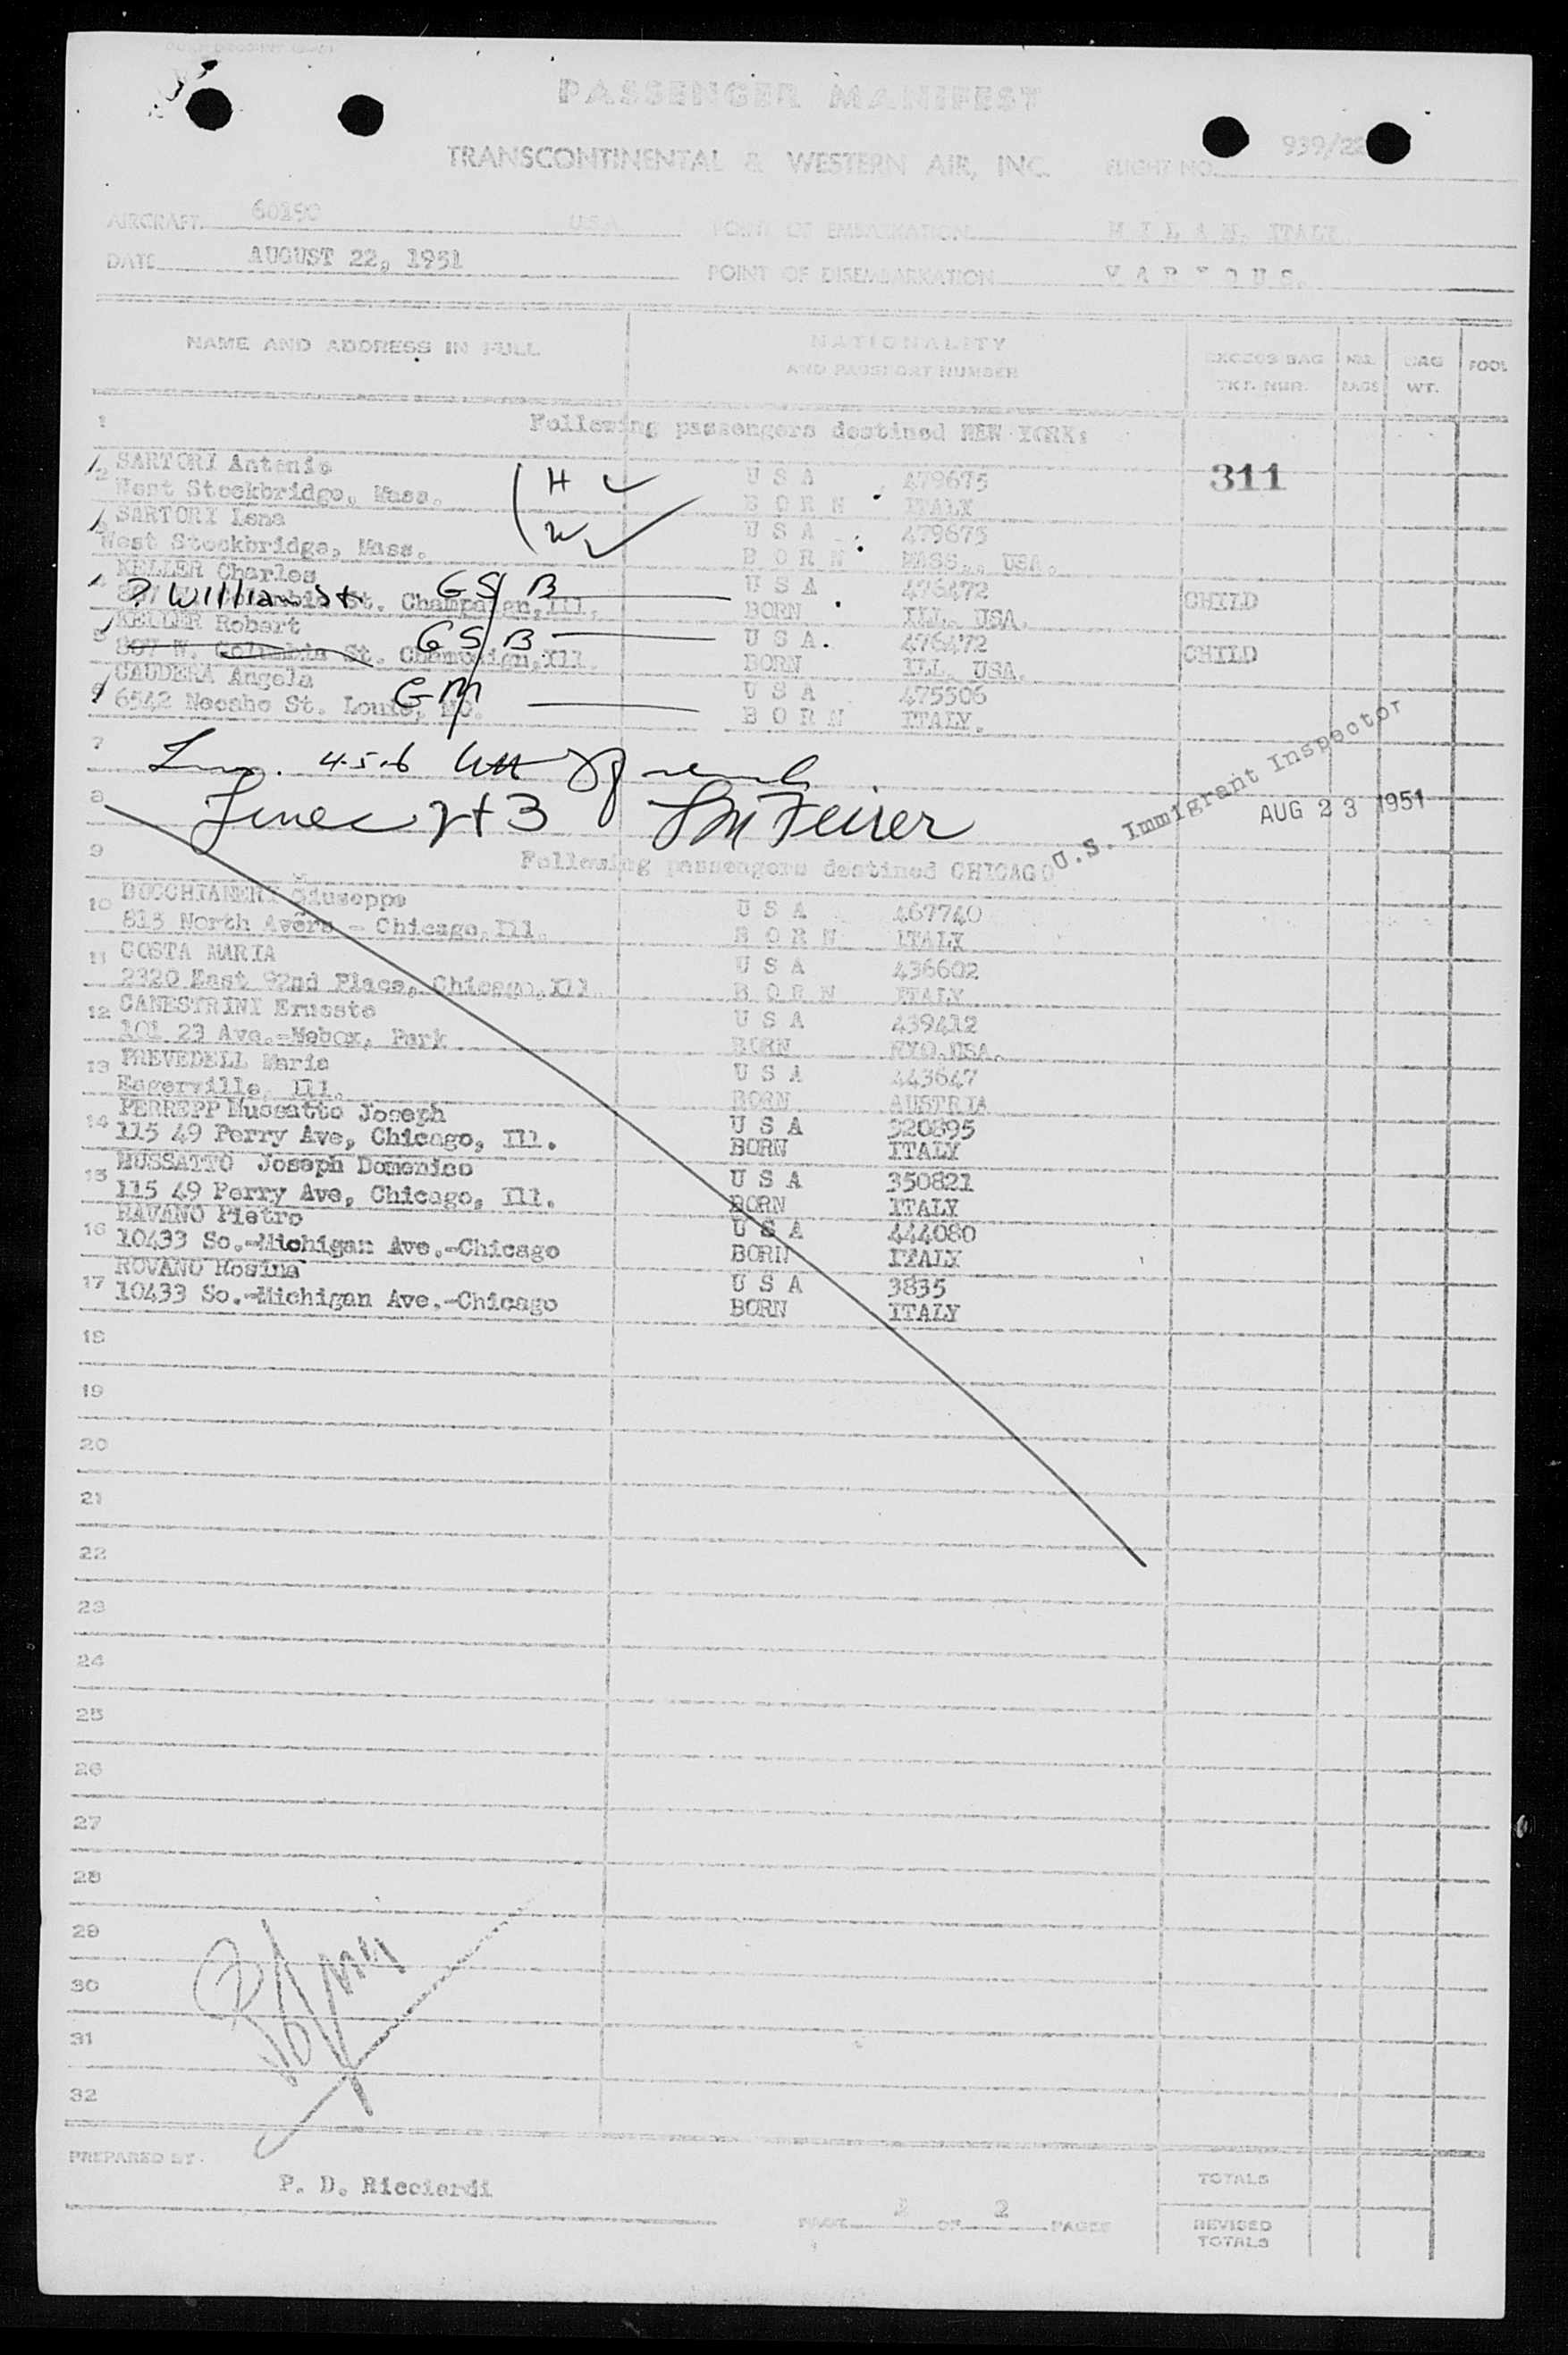 PASSENGER MANIFEST
TRANSCONTINENTAL & WESTERN AIR, INC. FLIGHT NO. 939/22
AIRCRAFT 6019C U.S.A. POINT OF EMBARKATION M I L A N, ITALY.
DATE AUGUST 22, 1951 POINT OF DISEMBARKATION V A R I O U S.
NAME AND ADDRESS IN FULL NATIONALITY AND PASSPORT NUMBER EXCESS BAG TKT. NUR. BAGS BAG WT. FOOD
1 Following passengers destined NEW YORK:
2 SARTORI Antonio H U S A 479675 311
West Stockbridge, Mass. B O R N ITALY
3 SARTORI Lena W U S A 479675
West Stockbridge, Mass. B O R N MASS., USA.
KELLER Charles U S A 476472
? William St. St. Champaign, Ill. GS/B BORN ILL. USA. CHILD
5 KELLER Robert U S A. 476472
807 W. Columbia St. Champaign, Ill. GS/B BORN ILL. USA. CHILD
6 CAUDERA Angela U S A 475506
6542 St. Louis, Mo. GM B O R N ITALY.
7 4-5-6
8 Lines 2+3
U.S. Immigrant Inspector
AUG 23 1951
9 Following passengers destined CHICAGO
10 Giuseppe U S A 467740
813 North Avers - Chicago, Ill. B O R N ITALY
11 COSTA MARIA U S A 436602
2320 East 92nd Place, Chicago, Ill. B O R N ITALY
12 CANESTRINI Ernesto U S A 439412
101 23 Ave.- Park BORN USA.
13 PREVEDELL Maria U S A 443647
Eagerville, Ill. BORN AUSTRIA
14 PERREPP Mussatto Joseph U S A 320895
115 49 Perry Ave, Chicago, Ill. BORN ITALY
15 MUSSATTO Joseph Domenico U S A 350821
115 49 Perry Ave, Chicago, Ill. BORN ITALY
16 RAVANO Pietro U S A 444080
10433 So.-Michigan Ave.-Chicago BORN ITALY
17 ROVANO Rosina U S A 3835
10433 So.-Michigan Ave.-Chicago BORN ITALY
18
19
20
21
22
23
24
25
26
27
28
29
30
31
32
PREPARED BY.
P. D. Ricciardi
PAGE 2 OF 2 PAGES
TOTALS
REVISED TOTALS